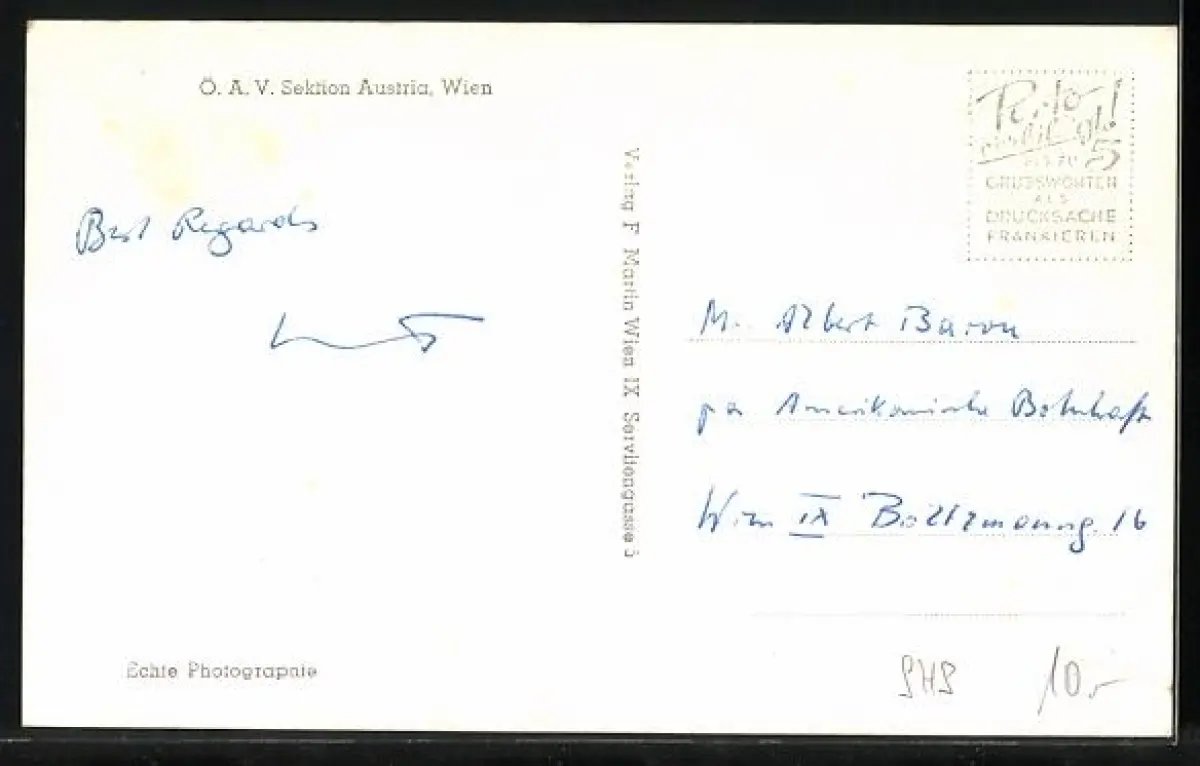 Ö. A. V. Sektion Austria, Wien
Best Regards
Verlag F. Martin Wien IX Servitengasse 5
5
GRUSSWORTEN
ALS
DRUCKSACHE
FRANKIEREN
M. Albert Baron
pa Amerikanische Botschaft
Wien IX Boltzmanng. 16
Echte Photographie
SHS 10.-